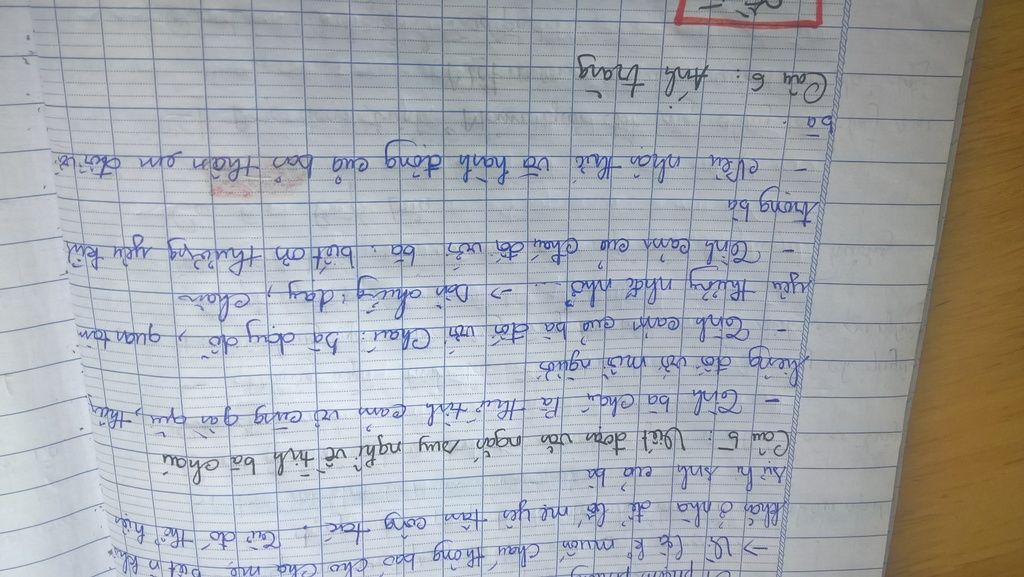 vi phạm phương
→ Vì bà k° muốn cháu thông báo cho cha mẹ biết n khó
khăn ở nhà để bố mẹ yên tâm công tác. Từ đó thể hiện
sự hi sinh của bà
Câu 5: Viết đoạn văn ngắn suy nghĩ về tình bà cháu
- Tình bà cháu là thứ tình cảm vô cùng gần gũi, thiêng
liêng đối với mỗi người
- Tình cảm của bà đối với cháu: bà dạy dỗ, quan tâm
yêu thương nhắc nhở... → Dẫn chứng: dạy, chăm
- Tình cảm của cháu đối với bà: biết ơn thương yêu kính
trọng bà
- Nêu nhận thức và hành động của bản thân em đối với
bà.
Câu 6: Ánh trăng